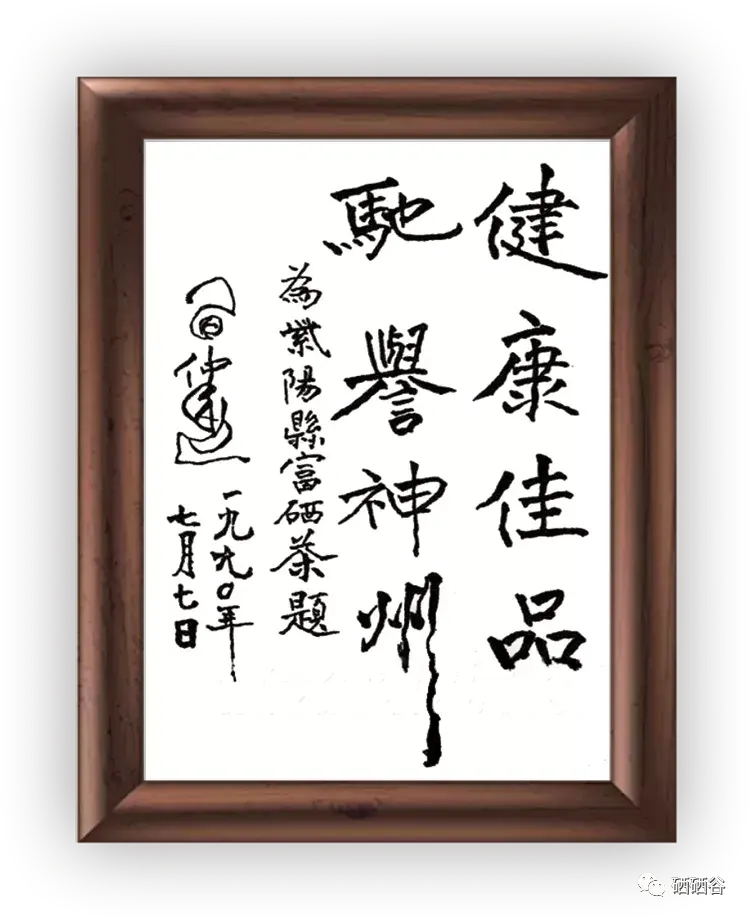 健康佳品
馳譽神州
為紫陽縣富硒茶題
一九九〇年
七月七日
硒硒谷